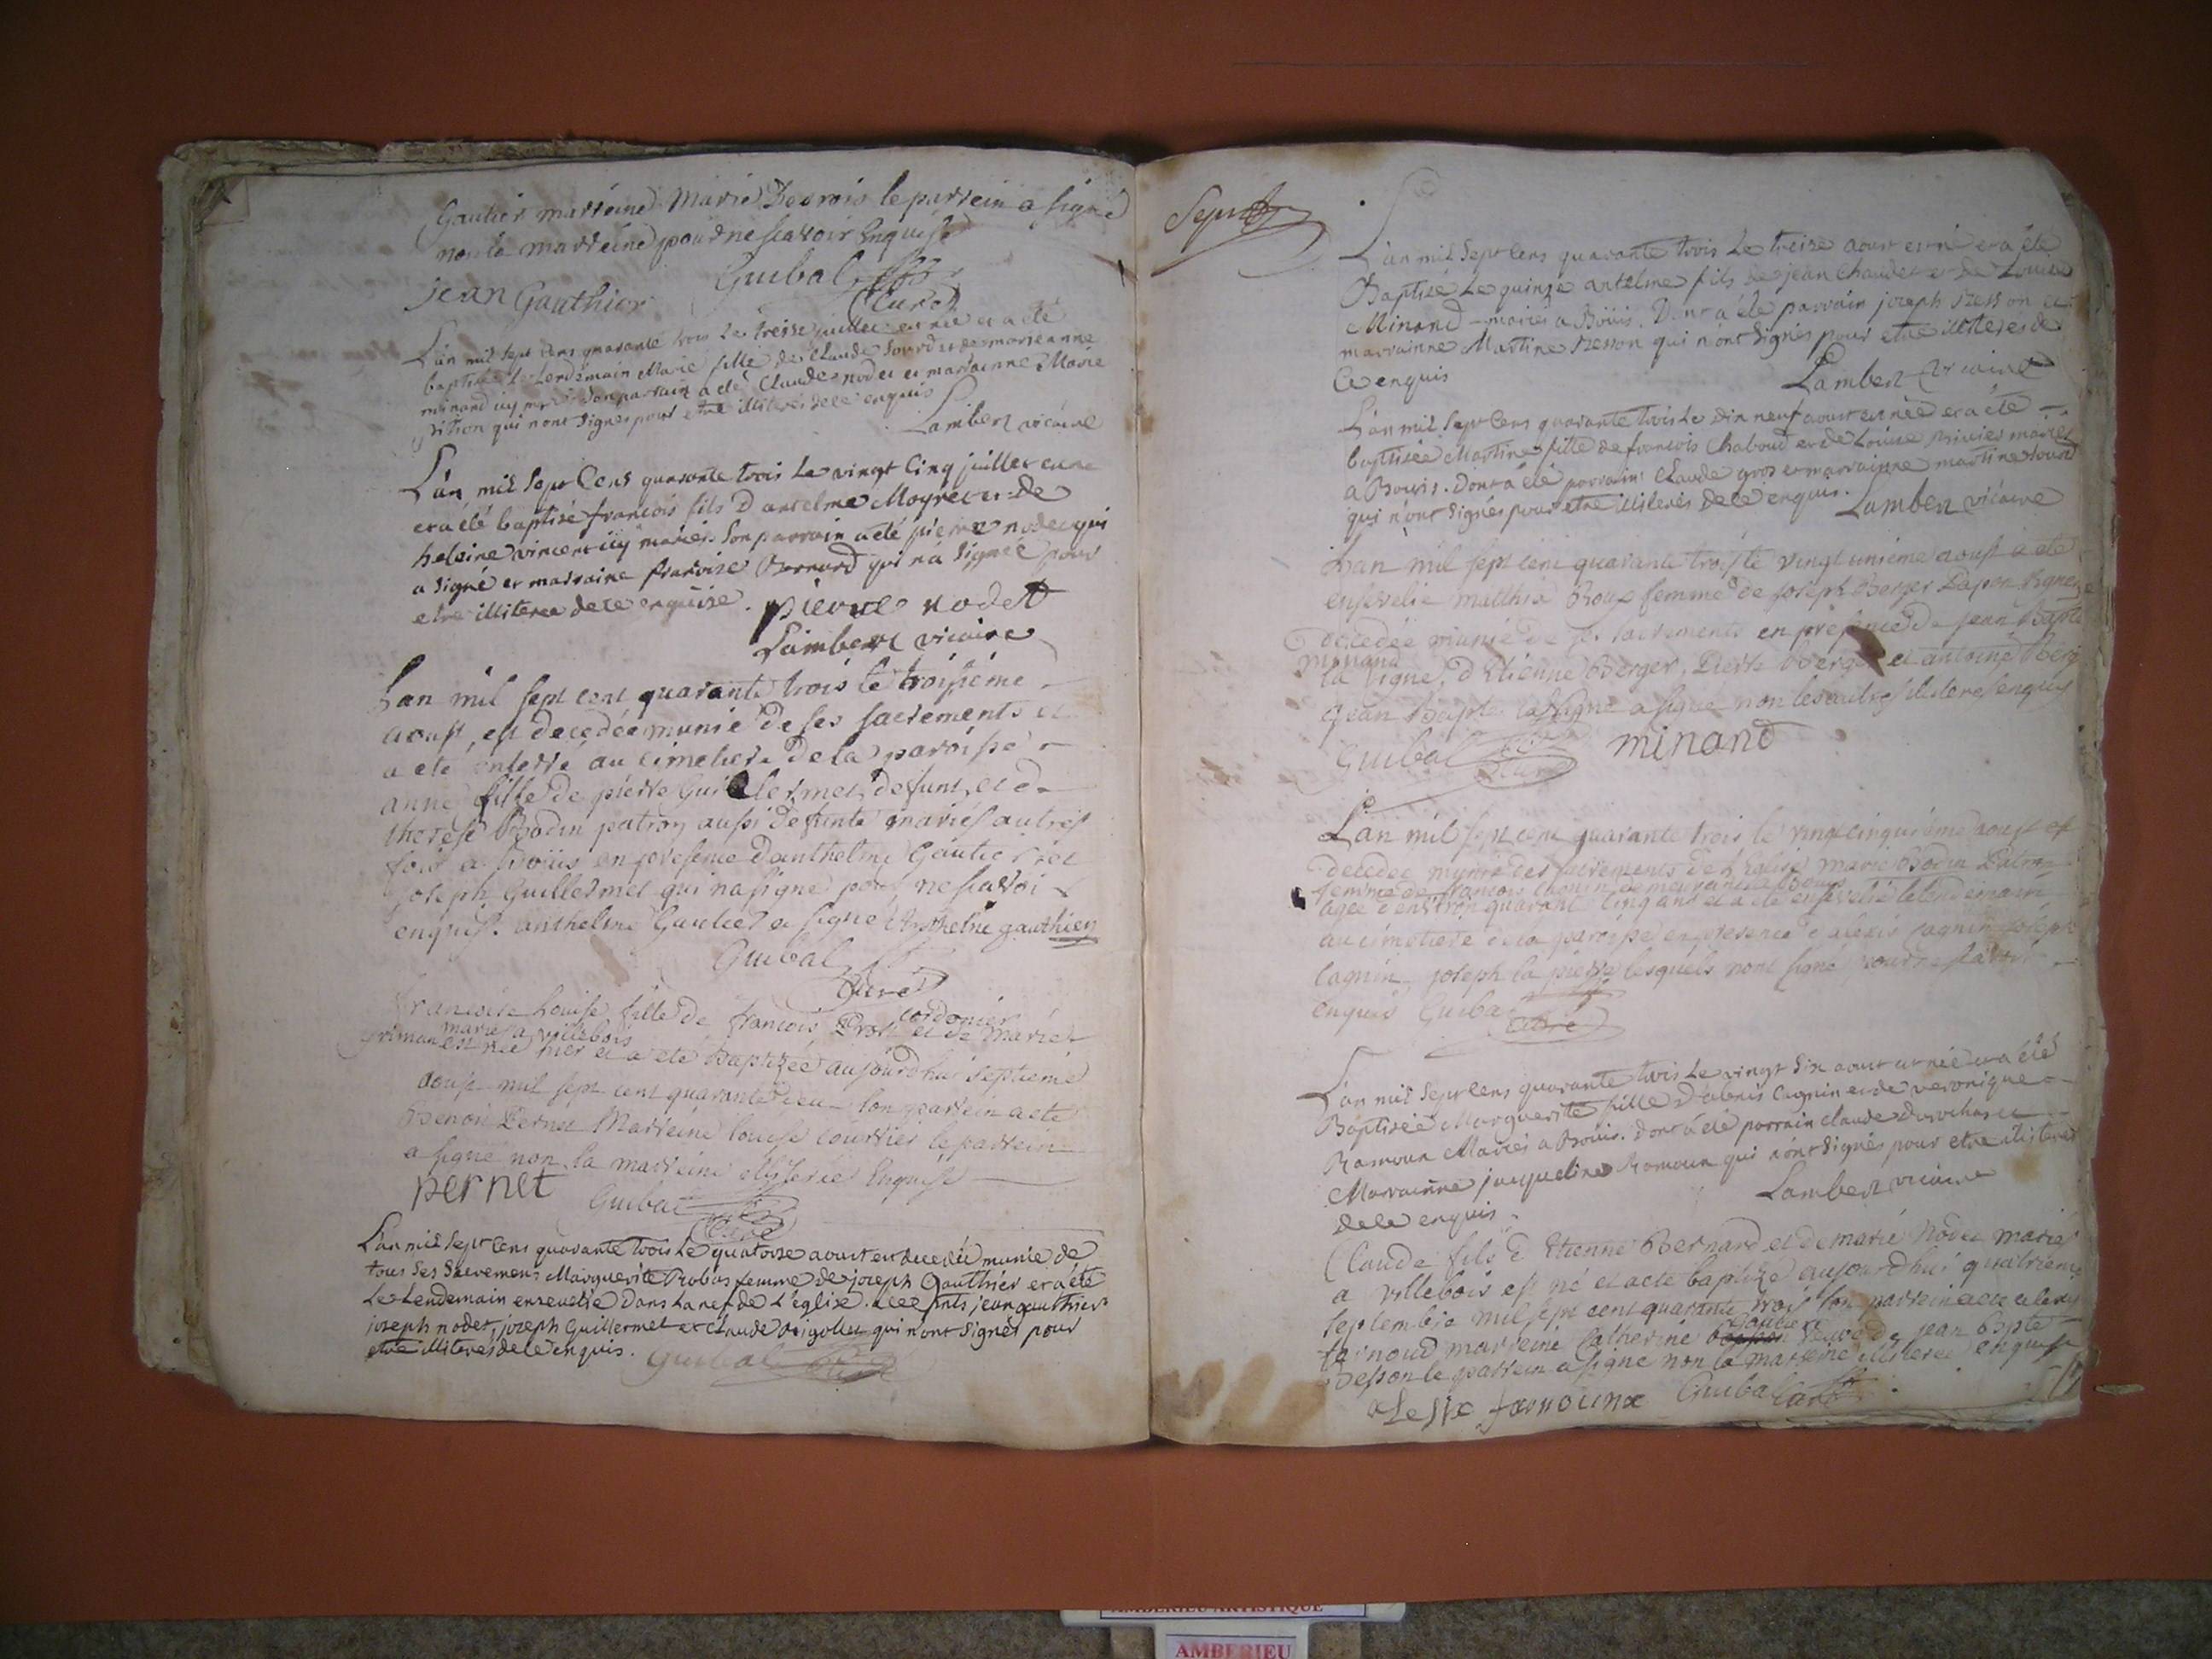 Gautier marreine Marie Desvois le parrein a signé
non la marreine pour ne scavoir enquise
Jean Gauthier Guibal Curé
L'an mil sept Cens quarante trois Le treise juillet est née et a été
baptisée Le Lendemain Marie fille de Claude Sourd et de marieanne
minand icy mariés Son parrain a été Claude nodet et marrainne Marie
qui n'ont Signés pour etre illiterés de ce enquis
Lambert vicaire
L'an mil Sept Cens quarante trois Le vingt Cinq juillet est né
et a été baptisé francois fils D'antelme et de
heleine vincent icy mariés. Son parrain a été pierre nodet qui
a Signé et marraine francoise Bernard qui n'a Signée pour
etre illiteree de ce enquise. pierre nodet
Lambert vicaire
Lan mil sept cent quarante trois le troisieme
aoust, est decedée munie de ses sacrements et
a ete enterré au cimetiere de la paroisse
anne fille de pierre Guillermet, defunt, et de
therese Bodin patron aussi defunte mariés autres
fois a Boüis en presence d'anthelme Gautier et
joseph Guillermet qui na signé pour ne scavoi
enquis. anthelme Gautier a signé Anthelme gauthier
Guibal Curé
francoise Louise fille de francois Prost cordonier et de Marie
mariés a villebois
est née hier et a eté baptizée aujourdhui septieme
aoust mil sept cent quarante son parrein a eté
Benoit Pernet Marreine louise courtier le parrein
a signé non la marreine enquise
pernet Guibal Curé
L'an mil Sept Cens quarante trois Le quatorse aoust est decedée munie de
tous Ses Sacremens Marguerite Robin femme de joseph Gauthier et a été
Le Lendemain ensevelie Dans La nef de L'eglise. jean gauthier
joseph nodet, joseph Guillermet et Claude qui n'ont Signés pour
etre illiterés de ce enquis. Guibal Curé
Septbre
L'an mil Sept Cens quarante trois Le treize aoust est né et a été
Baptisé Le quinze antelme fils de jean Chaudet et de Louise
Minand mariés a Boüis. Dont a été parrain joseph et
marrainne Martine qui n'ont Signés pour etre illiterés de
Ce enquis Lambert vicaire
L'an mil Sept Cens quarante trois Le dix neuf aoust est née et a été
baptisée Martine fille de francois Chaboud et de Louise mariés
a Bouis. Dont a été parrain Claude gros et marrainne martine Sourd
qui n'ont Signés pour etre illiterés de ce enquis. Lambert vicaire
Lan mil sept cent quarante trois le vingt unieme aoust a eté
ensevelie matthia Roux femme de joseph Berger
decedée munie de ses sacrements en presence de jean Bapte
minand
la vigne, d'Etienne Berger, Pierre Berger et antoine Berg
jean Bapte la vigne a signé non les autres illiterés enquis
Guibal Curé minand
L'an mil sept cent quarante trois le vingt cinquieme aoust est
decedée munie des sacrements de l'Eglise marie Bodin Patron
femme de francois
agée d'environ quarant cinq ans et a été ensevelie le lendemain
au cimetiere de la paroisse en presence d'alexis cagnin joseph
cagnin, joseph la pierre lesquels n'ont signé pour ne scavoir
enquis Guibal Curé
L'an mil Sept Cens quarante trois Le vingt Six aoust est née et a été
Baptisée Marguerite fille D'alexis Cagnin et de veronique
Ramoux Mariés a Bouis. Dont a été parrain Claude
Marrainne jacqueline Ramoux qui n'ont Signés pour etre illiterés
de ce enquis. Lambert vicaire
Claude fils d'Etienne Bernard et de marie Nodet mariés
a villebois est né et a eté baptizé aujourdhui quatrieme
septembre mil sept cent quarante trois son parrein a eté alexis
marreine Catherine Gautier veuve de jean Bapte
Besson le parrein a signé non la marreine illiterée enquise
Guibal Curé